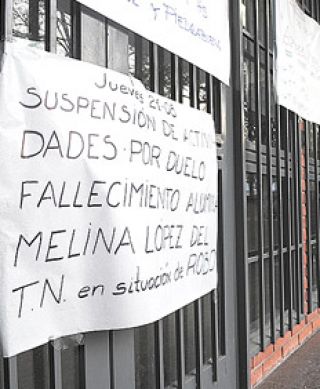 Y
Jueves 21-05
SUSPENSIÓN DE ACTIVI
DADES POR DUELO
FALLECIMIENTO ALUMNA
MELINA LÓPEZ DEL
T.N. en situación de ROBO